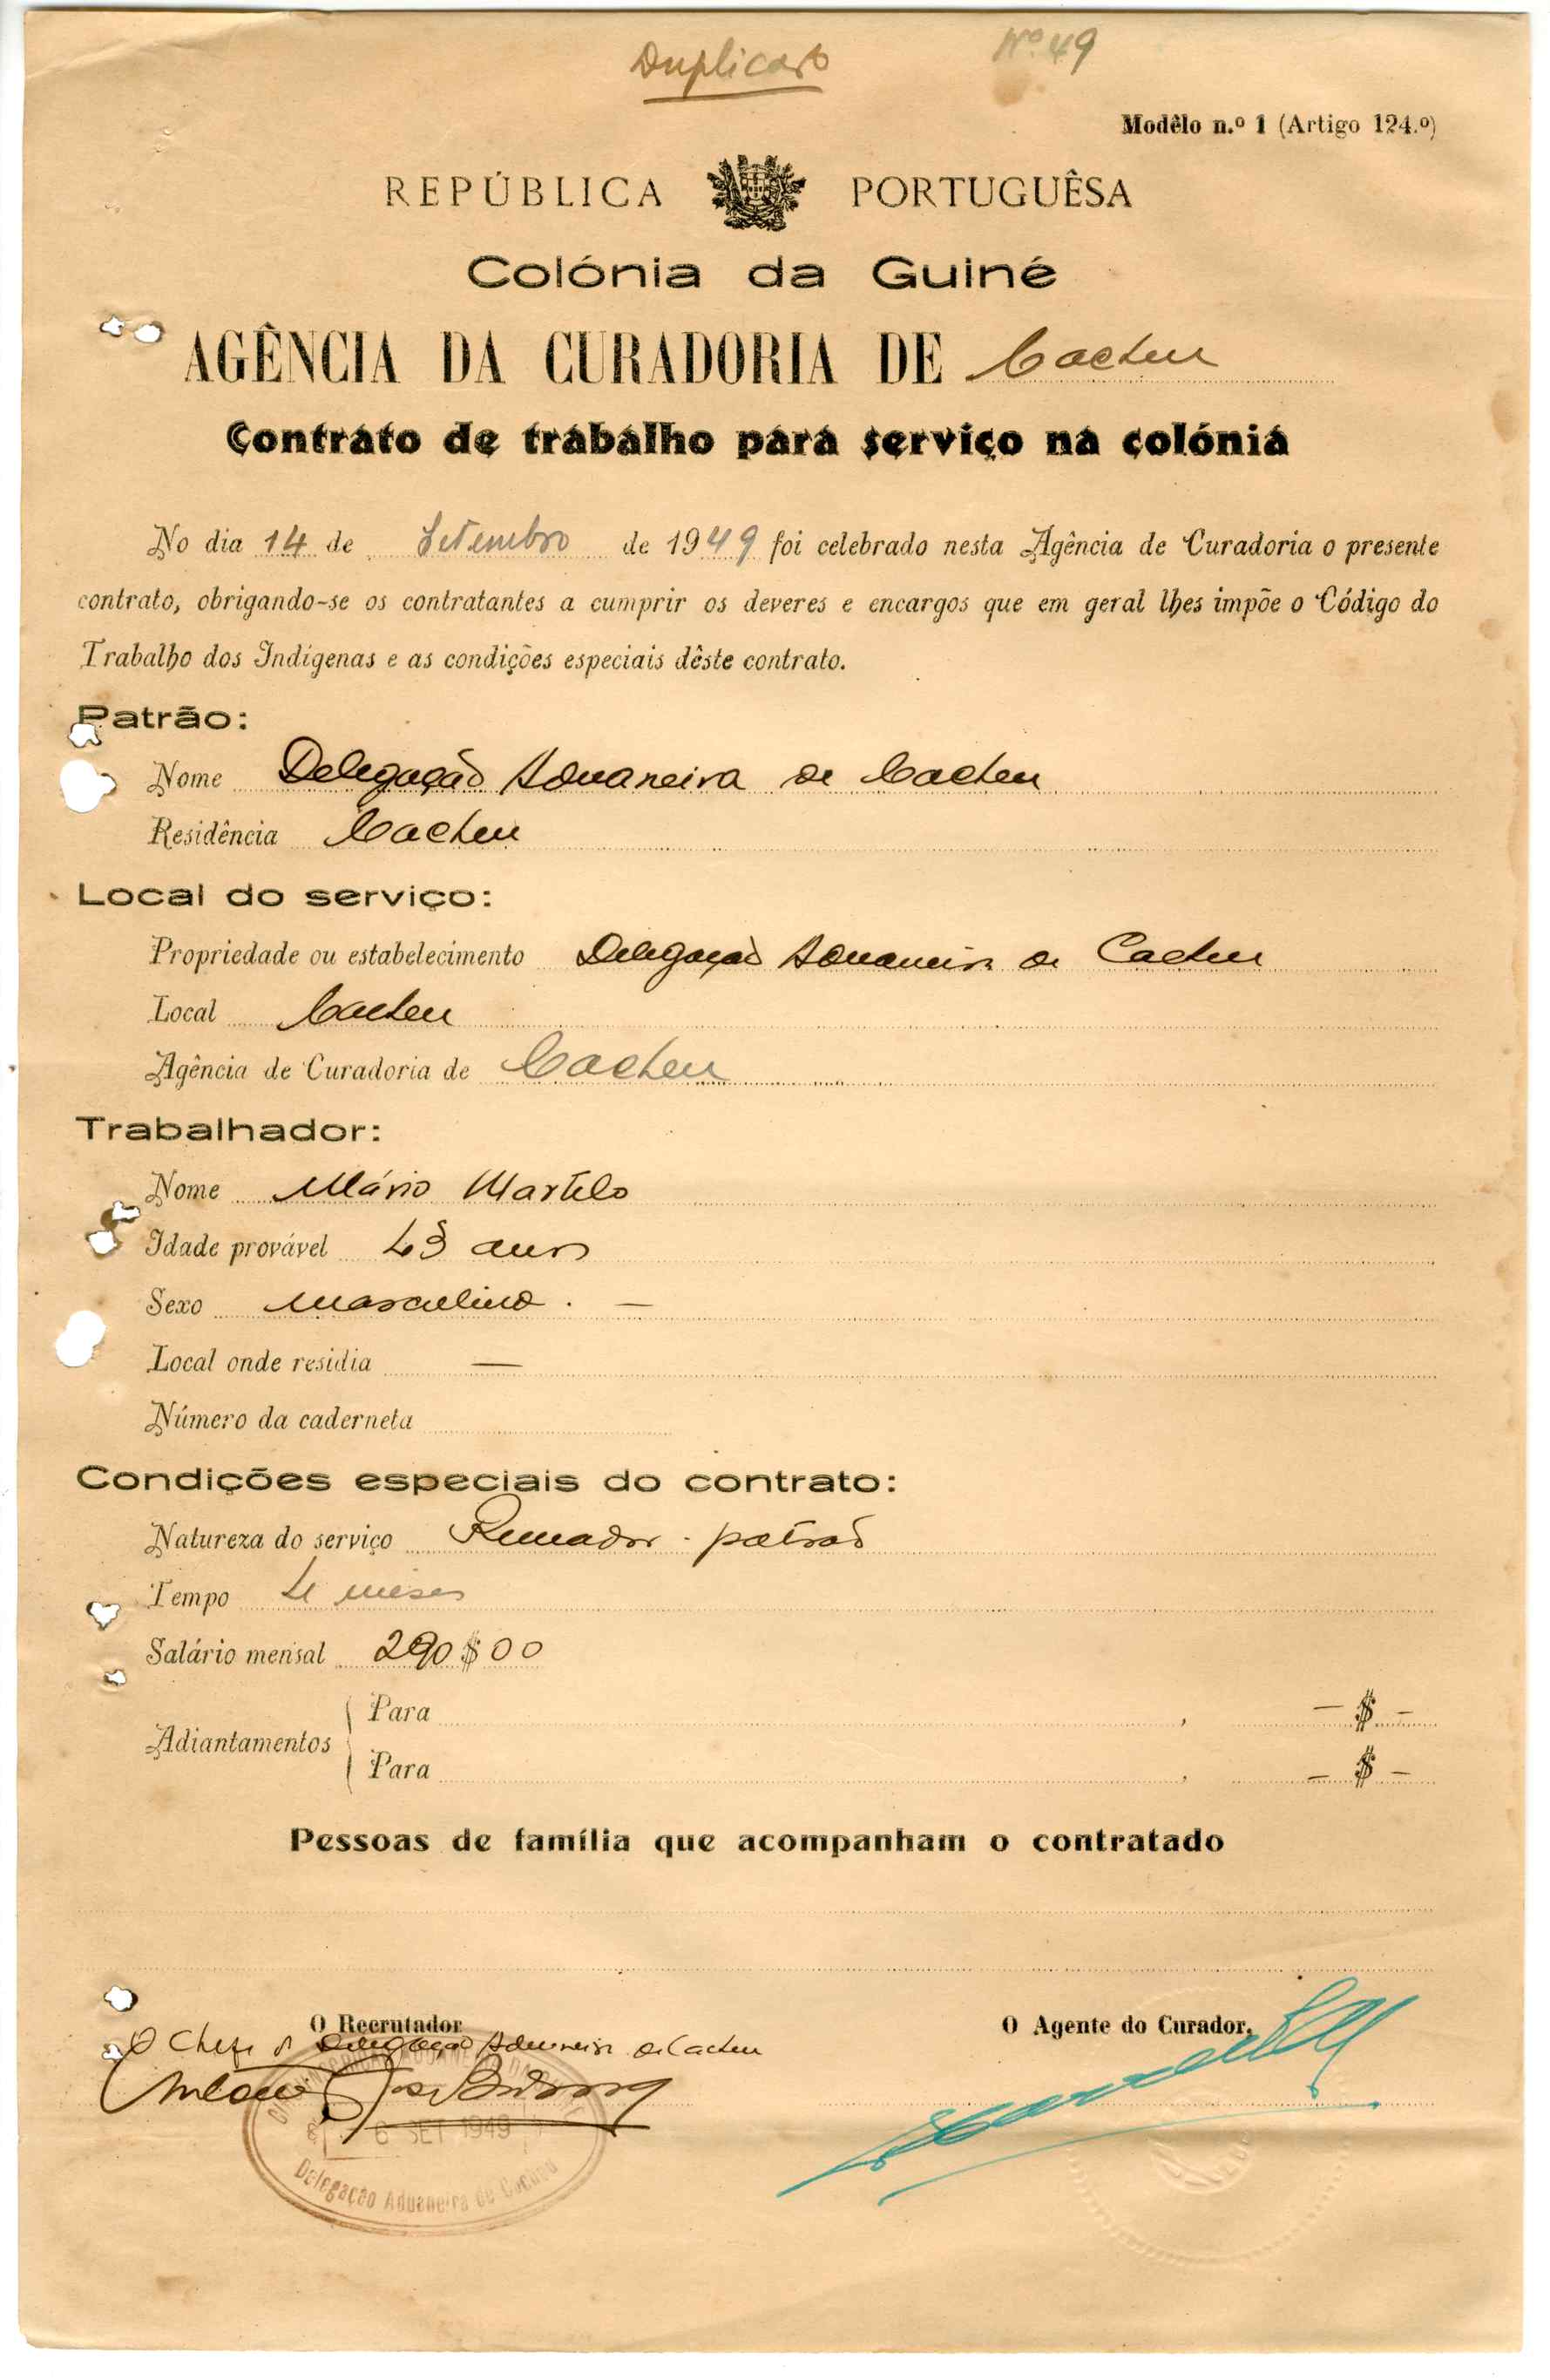 Duplicado
Nº 49
Modêlo n.º 1 (Artigo 124.º)
REPÚBLICA PORTUGUÊSA
Colónia da Guiné
AGÊNCIA DA CURADORIA DE Cacheu
Contrato de trabalho para serviço na colónia
No dia 14 de Setembro de 1949 foi celebrado nesta Agência de Curadoria o presente
contrato, obrigando-se os contratantes a cumprir os deveres e encargos que em geral lhes impõe o Código do
Trabalho dos Indígenas e as condições especiais dêste contrato.
Patrão:
Nome Delegação Aduaneira de Cacheu
Residência Cacheu
Local do serviço:
Propriedade ou estabelecimento Delegação Aduaneira de Cacheu
Local Cacheu
Agência de Curadoria de Cacheu
Trabalhador:
Nome Mário Martelo
Idade provável 43 anos
Sexo Masculino . —
Local onde residia —
Número da caderneta
Condições especiais do contrato:
Natureza do serviço Remador - patrão
Tempo 4 meses
Salário mensal 290$00
Adiantamentos
Para , — $ —
Para , — $ —
Pessoas de família que acompanham o contratado
O Recrutador
O Chefe da Delegação Aduaneira de Cacheu
O Agente do Curador,
6 SET 1949
Delegação Aduaneira de Cacheu